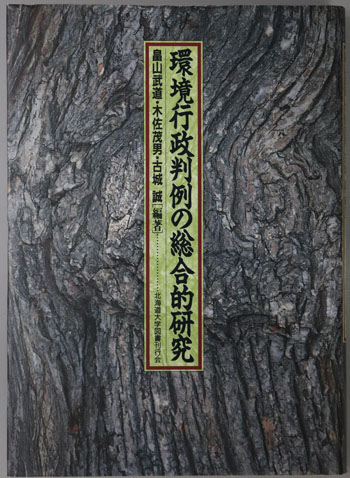 環境行政判例の総合的研究
畠山武道・木佐茂男・古城 誠[編著]………………北海道大学図書刊行会